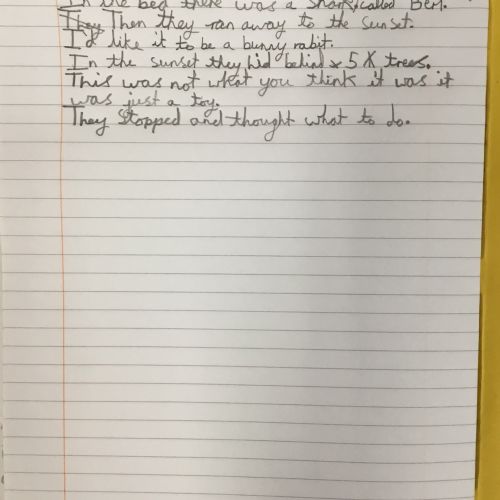 In the bed there was a shark called Bert.
They Then they ran away to the sunset.
I'd like it to be a bunny rabit.
In the sunset they hid behind x 5 X trees.
This was not what you think it was it
was just a toy.
They stopped and thought what to do.